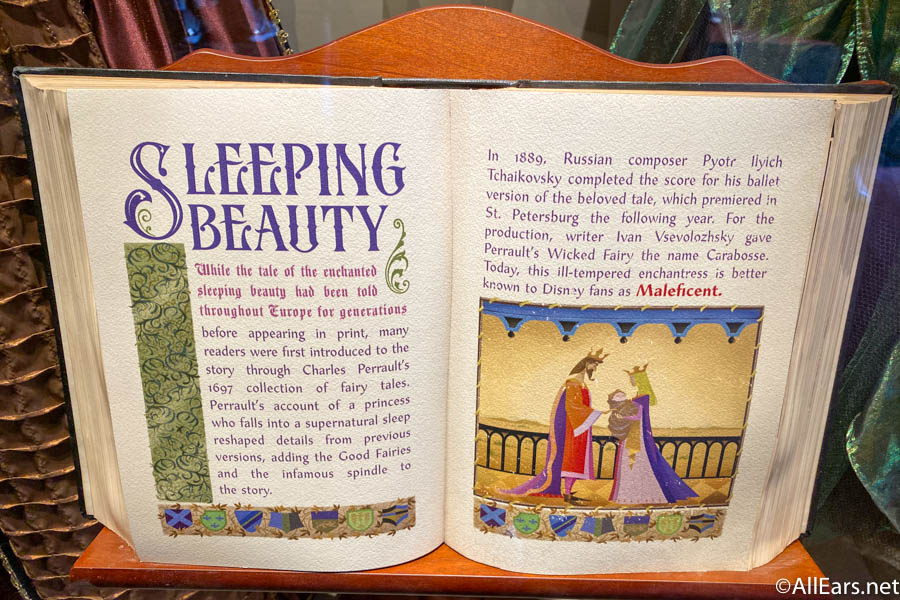 SLEEPING
BEAUTY
While the tale of the enchanted
sleeping beauty had been told
throughout Europe for generations
before appearing in print, many
readers were first introduced to the
story through Charles Perrault's
1697 collection of fairy tales.
Perrault's account of a princess
who falls into a supernatural sleep
reshaped details from previous
versions, adding the Good Fairies
and the infamous spindle to
the story.
In 1889, Russian composer Pyotr Ilyich
Tchaikovsky completed the score for his ballet
version of the beloved tale, which premiered in
St. Petersburg the following year. For the
production, writer Ivan Vsevolozhsky gave
Perrault's Wicked Fairy the name Carabosse.
Today, this ill-tempered enchantress is better
known to Disney fans as Maleficent.
©AllEars.net